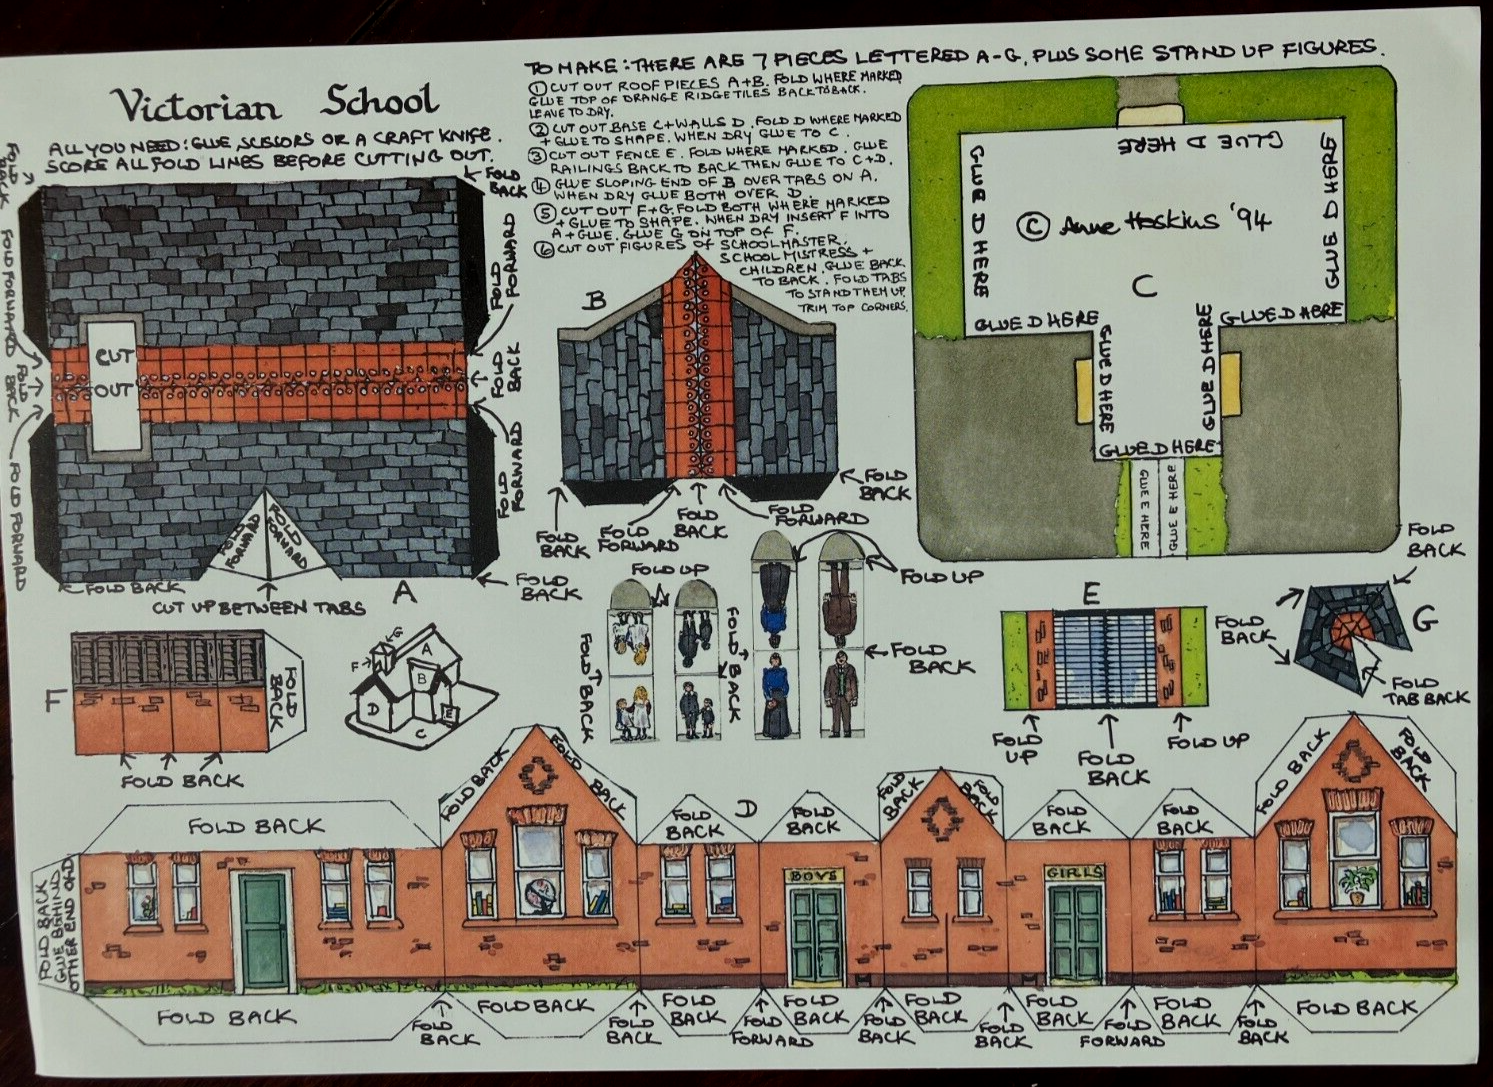 Victorian School
ALL YOU NEED: GLUE SCISSORS OR A CRAFT KNIFE.
SCORE ALL FOLD LINES BEFORE CUTTING OUT.
TO MAKE: THERE ARE 7 PIECES LETTERED A-G, PLUS SOME STAND UP FIGURES.
① CUT OUT ROOF PIECES A+B. FOLD WHERE MARKED
GLUE TOP OF ORANGE RIDGE TILES BACK TO BACK.
LEAVE TO DRY.
② CUT OUT BASE C+WALLS D. FOLD D WHERE MARKED
+ GLUE TO SHAPE. WHEN DRY GLUE TO C.
③ CUT OUT FENCE E. FOLD WHERE MARKED. GLUE
RAILINGS BACK TO BACK THEN GLUE TO C+D.
④ GLUE SLOPING END OF B OVER TABS ON A.
WHEN DRY GLUE BOTH OVER D
⑤ CUT OUT F+G. FOLD BOTH WHERE MARKED
+ GLUE TO SHAPE. WHEN DRY INSERT F INTO
A+GLUE. GLUE G ON TOP OF F.
⑥ CUT OUT FIGURES OF SCHOOLMASTER.
SCHOOL MISTRESS +
CHILDREN. GLUE BACK
TO BACK. FOLD TABS
TO STAND THEM UP.
TRIM TOP CORNERS.
FOLD BACK
FOLD BACK
FOLD FORWARD
FOLD FORWARD
CUT OUT
FOLD BACK
FOLD BACK
FOLD FORWARD
FOLD FORWARD
FOLD FORWARD
FOLD FORWARD
FOLD BACK
FOLD BACK
CUT UP BETWEEN TABS
A
B
FOLD BACK
FOLD BACK
FOLD FORWARD
FOLD BACK
FOLD FORWARD
GLUE D HERE
GLUE D HERE
GLUE D HERE
© Anne Hoskins '94
C
GLUE D HERE
GLUE D HERE
GLUE D HERE
GLUE D HERE
GLUE D HERE
GLUE E HERE
GLUE E HERE
FOLD UP
FOLD UP
FOLD BACK
FOLD BACK
FOLD BACK
E
FOLD UP
FOLD BACK
FOLD UP
G
FOLD BACK
FOLD BACK
FOLD TAB BACK
F
FOLD BACK
FOLD BACK
G
F
A
B
D
E
C
D
FOLD BACK
FOLD BACK
FOLD BACK
FOLD BACK
FOLD BACK
FOLD BACK
FOLD BACK
FOLD BACK
FOLD BACK
FOLD BACK
FOLD BACK
FOLD BACK GLUE BEHIND OTHER END OF D
BOYS
GIRLS
FOLD BACK
FOLD BACK
FOLD BACK
FOLD BACK
FOLD BACK
FOLD FORWARD
FOLD BACK
FOLD BACK
FOLD BACK
FOLD BACK
FOLD BACK
FOLD FORWARD
FOLD BACK
FOLD BACK
FOLD BACK